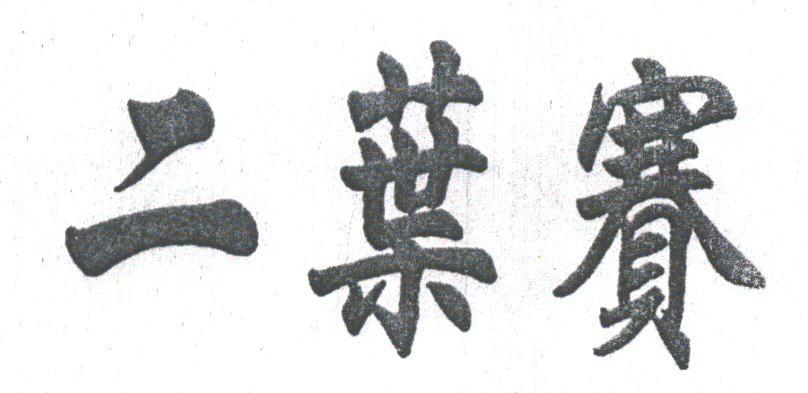 二葉賽